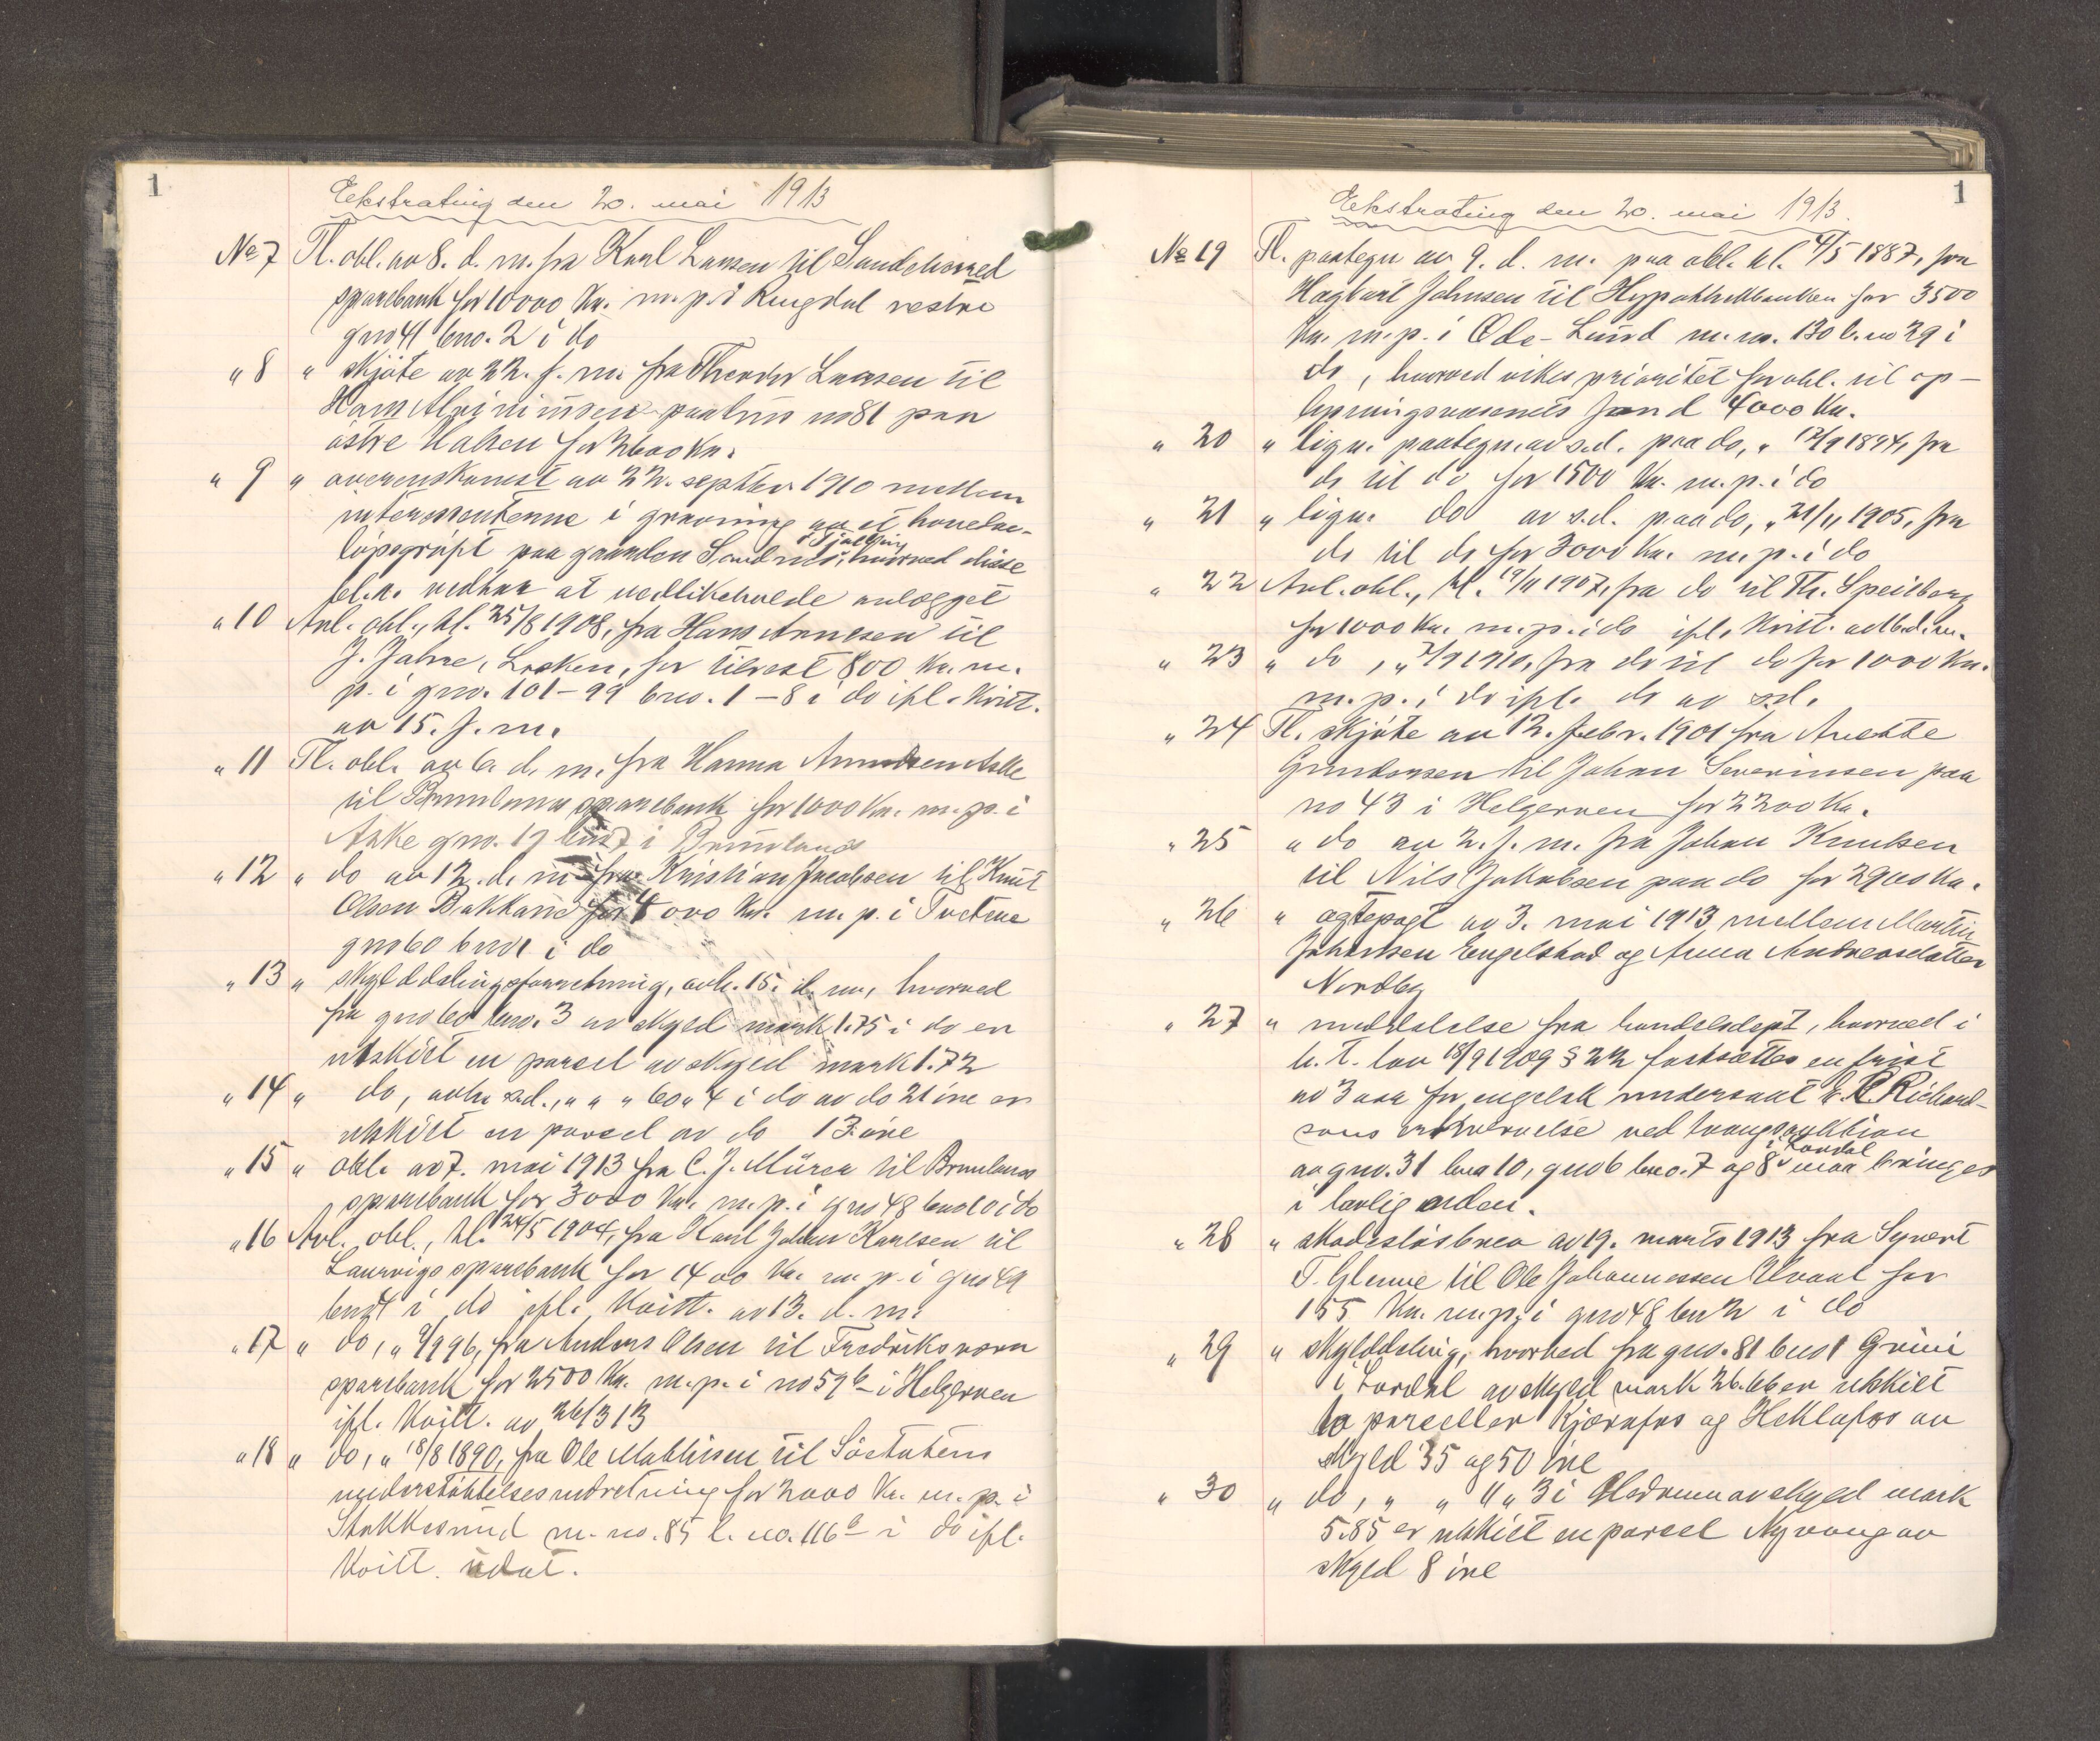 1
Ekstrating den 20. mai 1913
No 7 Tl. obl. av 8. d. m. fra Karl Larsen til Sandeherred
sparebank for 10000 Kr. m. p. i Ringdal vestre
gno 41 bno. 2 i do
" 8 " skjöte av 22. f. m. fra Theodor Larsen til
Hans paa no 81 paa
östre Halsen for 2600 Kr.
" 9 " overenskomst av 22. septbr. 1910 mellem
interessenterne i gravning av et hovedav-
i Tjølling
löpsgröft paa garden hvorved disse
bl. a. vedtar at vedlikeholde anlægget
" 10 Avl. obl., tl. 25/8 1908, fra Hans Arnesen til
J. Jahre, for tilrest 800 Kr. m.
p. i gno. 101-99 bno. 1-8 i do ifl. Kvitt.
av 15. f. m.
" 11 Tl. obl. av 6. d. m. fra Hanna Amundsen Aske
til Brunlanes sparebank for 1000 Kr. m. p. i
Aske gno. 19 bno 7 i Brunlanes
" 12 " do av 12. d. m. fra Kristian Jacobsen til Knut
Olsen Bakkane for 4000 Kr. m. p. i Tvetene
gno 60 bno 1 i do
" 13 " skylddelingsforretning, avh. 15. d. m., hvorved
fra gno 60 bno. 3 av skyld mark 1.75 i do er
utskilt en parsel av skyld mark 1.72
" 14 " do, avh. s.d., " " " 60 " 4 i do av do 21 öre er
utskilt en parsel av do 13 öre
" 15 " obl. av 7. mai 1913 fra C. J. Müren til Brunlanes
sparebank for 3000 Kr. m. p. i gno 48 bno 10 i do
" 16 Avl. obl., tl. 24/5 1904, fra Karl Johan Karlsen til
Laurvigs sparebank for 1400 Kr. m. p. i gno 49
bno 1 i do ifl. Kvitt. av 13. d. m.
" 17 " do, " 9/9 96, fra Anders Olsen til Fredriksværn
sparebank for 2500 Kr. m. p. i no 59 b i Helgeroen
ifl. Kvitt. av 26/3 13
" 18 " do, " 18/8 1890, fra Ole Mathisen til Söetatens
understöttelsesindretning for 2000 Kr. m. p. i
Stokkesund m. no. 85 l. no. 116 b i do ifl.
Kvitt. udat.
1
Ekstrating den 20. mai 1913.
No 19 Tl. paategn av 9. d. m. paa obl. tl. 4/5 1887, fra
Hagbart Johnsen til Hypothekbanken for 3500
Kr. m. p. i Öde-Lund m. no. 130 l. no 29 i
do, hvorved vikes prioritet for obl. til op-
fond 4000 Kr.
" 20 " lign. paategn. av s.d. paa do, " 12/9 1894, fra
do til do for 1500 Kr. m. p. i do
" 21 " lign. do av s.d. paa do, " 21/11 1905, fra
do til do for 3000 Kr. m. p. i do
" 22 Avl. obl., tl. 19/11 1907, fra do til Th. Speilberg
for 1000 Kr. m. p. i do ifl. Kvitt. av d. m.
" 23 " do, " 1910, fra do til do for 1000 Kr.
m. p. i do ifl. do av s.d.
" 24 Tl. skjöte av 12. febr. 1901 fra Anette
Gundersen til Johan Severinsen paa
no 43 i Helgeroen for 2200 Kr.
" 25 " do av 2. f. m. fra Johan Knudsen
til Nils Jakobsen paa do for 2900 Kr.
" 26 " ægtepagt av 3. mai 1913 mellem Martin
Johansen Engelstad og Anna Andreasdatter
Nordby
" 27 " meddelelse fra handelsdept, hvorved i
h. t. lov 18/9 1909 § 22 fastsættes en frist
av 3 aar for engelsk undersaat E. R. Richard-
sons erhvervelse ved tvangsauktion
i Lardal
av gno. 31 bno 10, gno 6 bno. 7 og 8 maa bringes
i lovlig orden.
" 28 " skadeslösbrev av 19. marts 1913 fra Syvert
T. Glenne til Ole Johannessen for
155 Kr. m. p. i gno 48 bno 2 i do
" 29 " skylddeling, hvorved fra gno. 81 bno 1 Gvini
i Lardal av skyld mark 26.66 er utskilt
to parceller Kjærafos og Heklafos av
skyld 35 og 50 öre
" 30 " do, " " 4 " 3 i Hedrum av skyld mark
5.85 er utskilt en parsel Nyvang av
skyld 8 öre